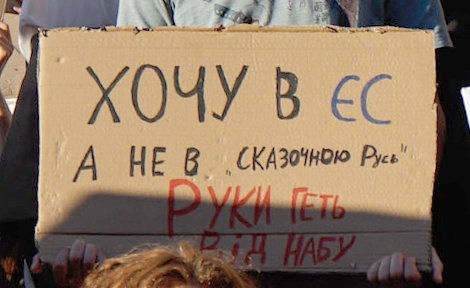 ХОЧУ В ЄС
А НЕ В „СКАЗОЧНОЮ РУСЬ"
РУКИ ГЕТЬ
ВІД НАБУ